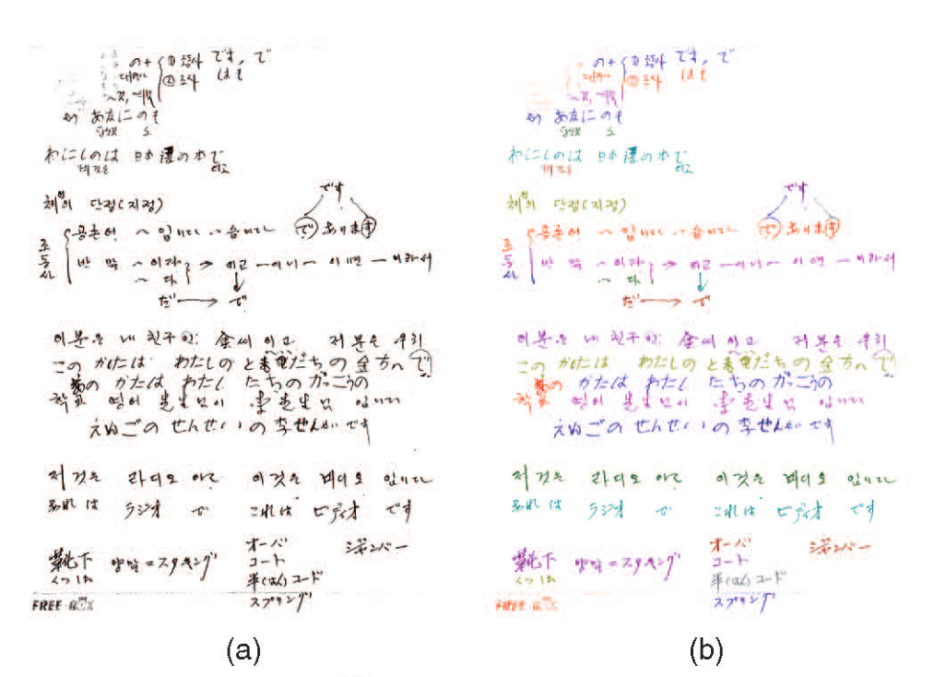 の+ ① 명사 です, で
② 조사 は も
あなたにのも
わたしのは 日本語の本で
이고
です
체의 단정(지정)
で あります
공손어 ~입니다 ~습니다
조동사
반말 ~이다 → 이고 ー이니 ー이면 ー이라서
~다
だ → で
이분은 내 친구인 金씨이고 저분은 우리
この かたは わたしの ともだちの 金さんで
あの かたは わたし たちの がっこうの
학교 영어 선생님이 李선생님 입니다
えいごの せんせい の 李せんせい です
저것은 라디오이고 이것은 비디오 입니다
あれは ラジオ で これは ビディオ です
靴下 양말=スタキング
くつした
オーバ
コート
半(はん)コード
スプリング
ジャンバー
FREE BOX
(a)
の+ ① 명사 です, で
② 조사 は も
あなたにのも
わたしのは 日本語の本で
이고
です
체의 단정(지정)
で あります
공손어 ~입니다 ~습니다
조동사
반말 ~이다 → 이고 ー이니 ー이면 ー이라서
~다
だ → で
이분은 내 친구인 金씨이고 저분은 우리
この かたは わたしの ともだちの 金さんで
あの かたは わたし たちの がっこうの
학교 영어 선생님이 李선생님 입니다
えいごの せんせい の 李せんせい です
저것은 라디오이고 이것은 비디오 입니다
あれは ラジオ で これは ビディオ です
靴下 양말=スタキング
くつした
オーバ
コート
半(はん)コード
スプリング
ジャンバー
FREE BOX
(b)